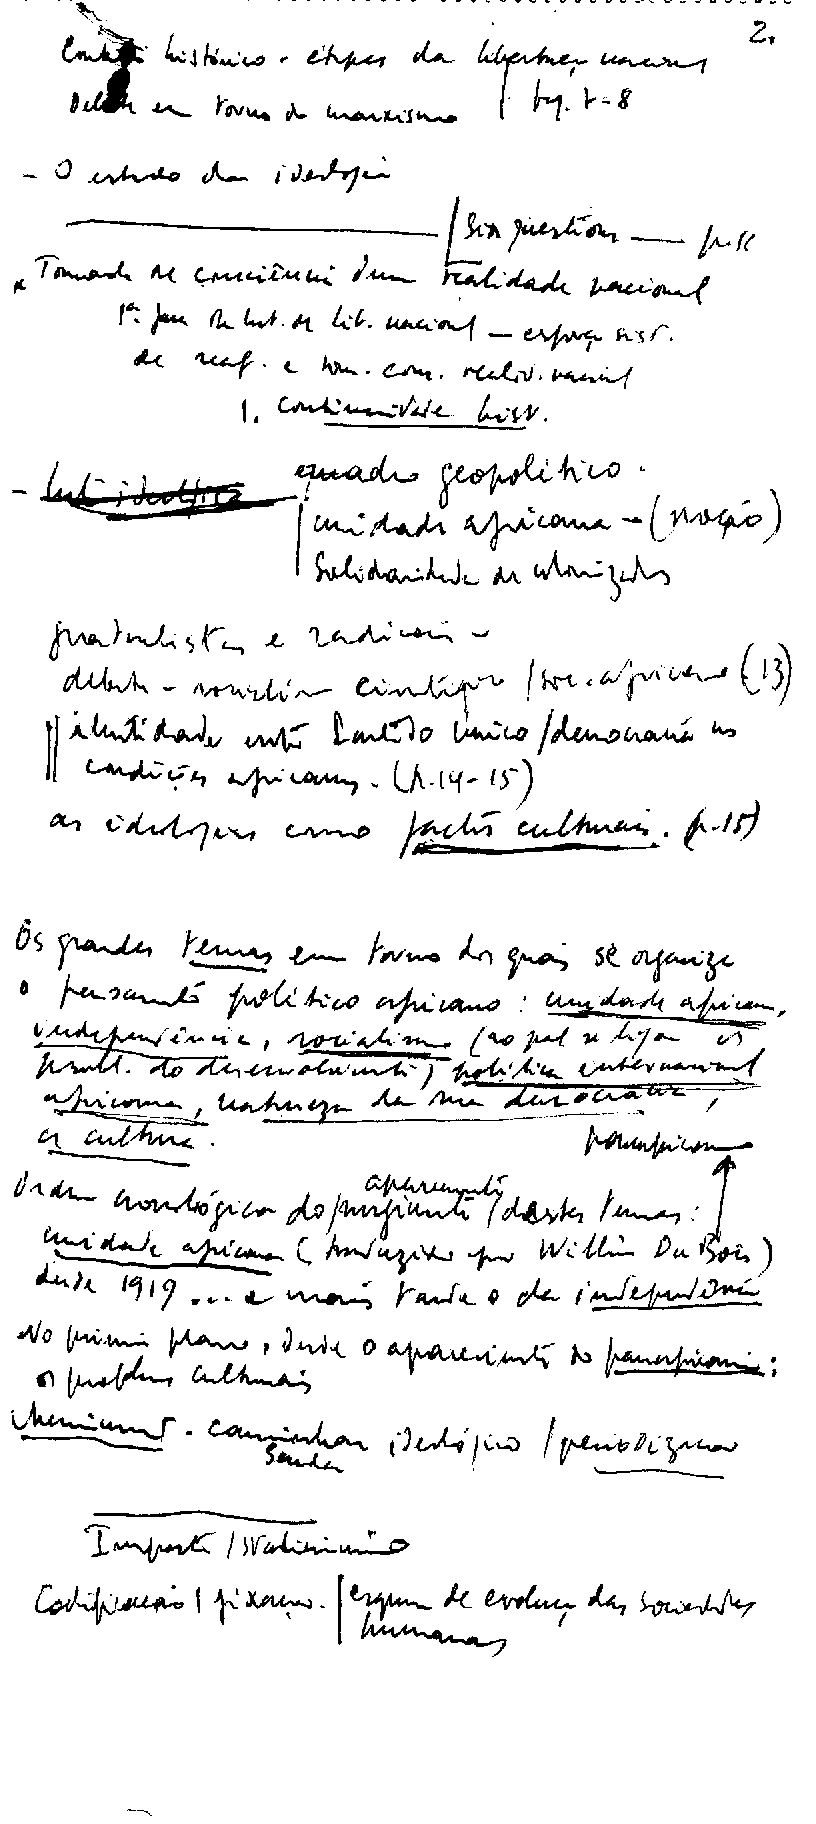 2.
histórico - etapas da libertação nacional
Debate em torno do marxismo | pg. 7-8
- O estudo da ideologia
Six questions — p.
x Tomada de consciência duma realidade nacional
1ª fase da lut. de lib. nacional — esforço sist.
de reaf. e tom. con. realid. nacional
1. continuidade hist.
- Lut ideológica quadro geopolítico.
unidade africana - (noção)
Solidariedade de colonizados
gradualistas e radicais -
debate - socialismo científico / soc. africano (13)
identidade entre Partido único / democracia nas
condições africanas. (p. 14-15)
as ideologias como factos culturais. (p. 15)
Os grandes temas em torno dos quais se organiza
o pensamento político africano: unidade africana,
independência, socialismo (ao qual se liga os
probl. do desenvolvimento) política internacional
africana, natureza da sua democracia,
a cultura.
panafricanismo
Ordem cronológica do surgimento / aparecimento destes temas:
unidade africana (traduzido por William Du Bois)
desde 1919 ... e mais tarde o da independência
No primeiro plano, desde o aparecimento do panafricanismo:
os problemas culturais
- caminhar ideológico / periodização
Senda
Impacte / stalinismo
Codificação / fixação. | esquema de evolução das sociedades
humanas